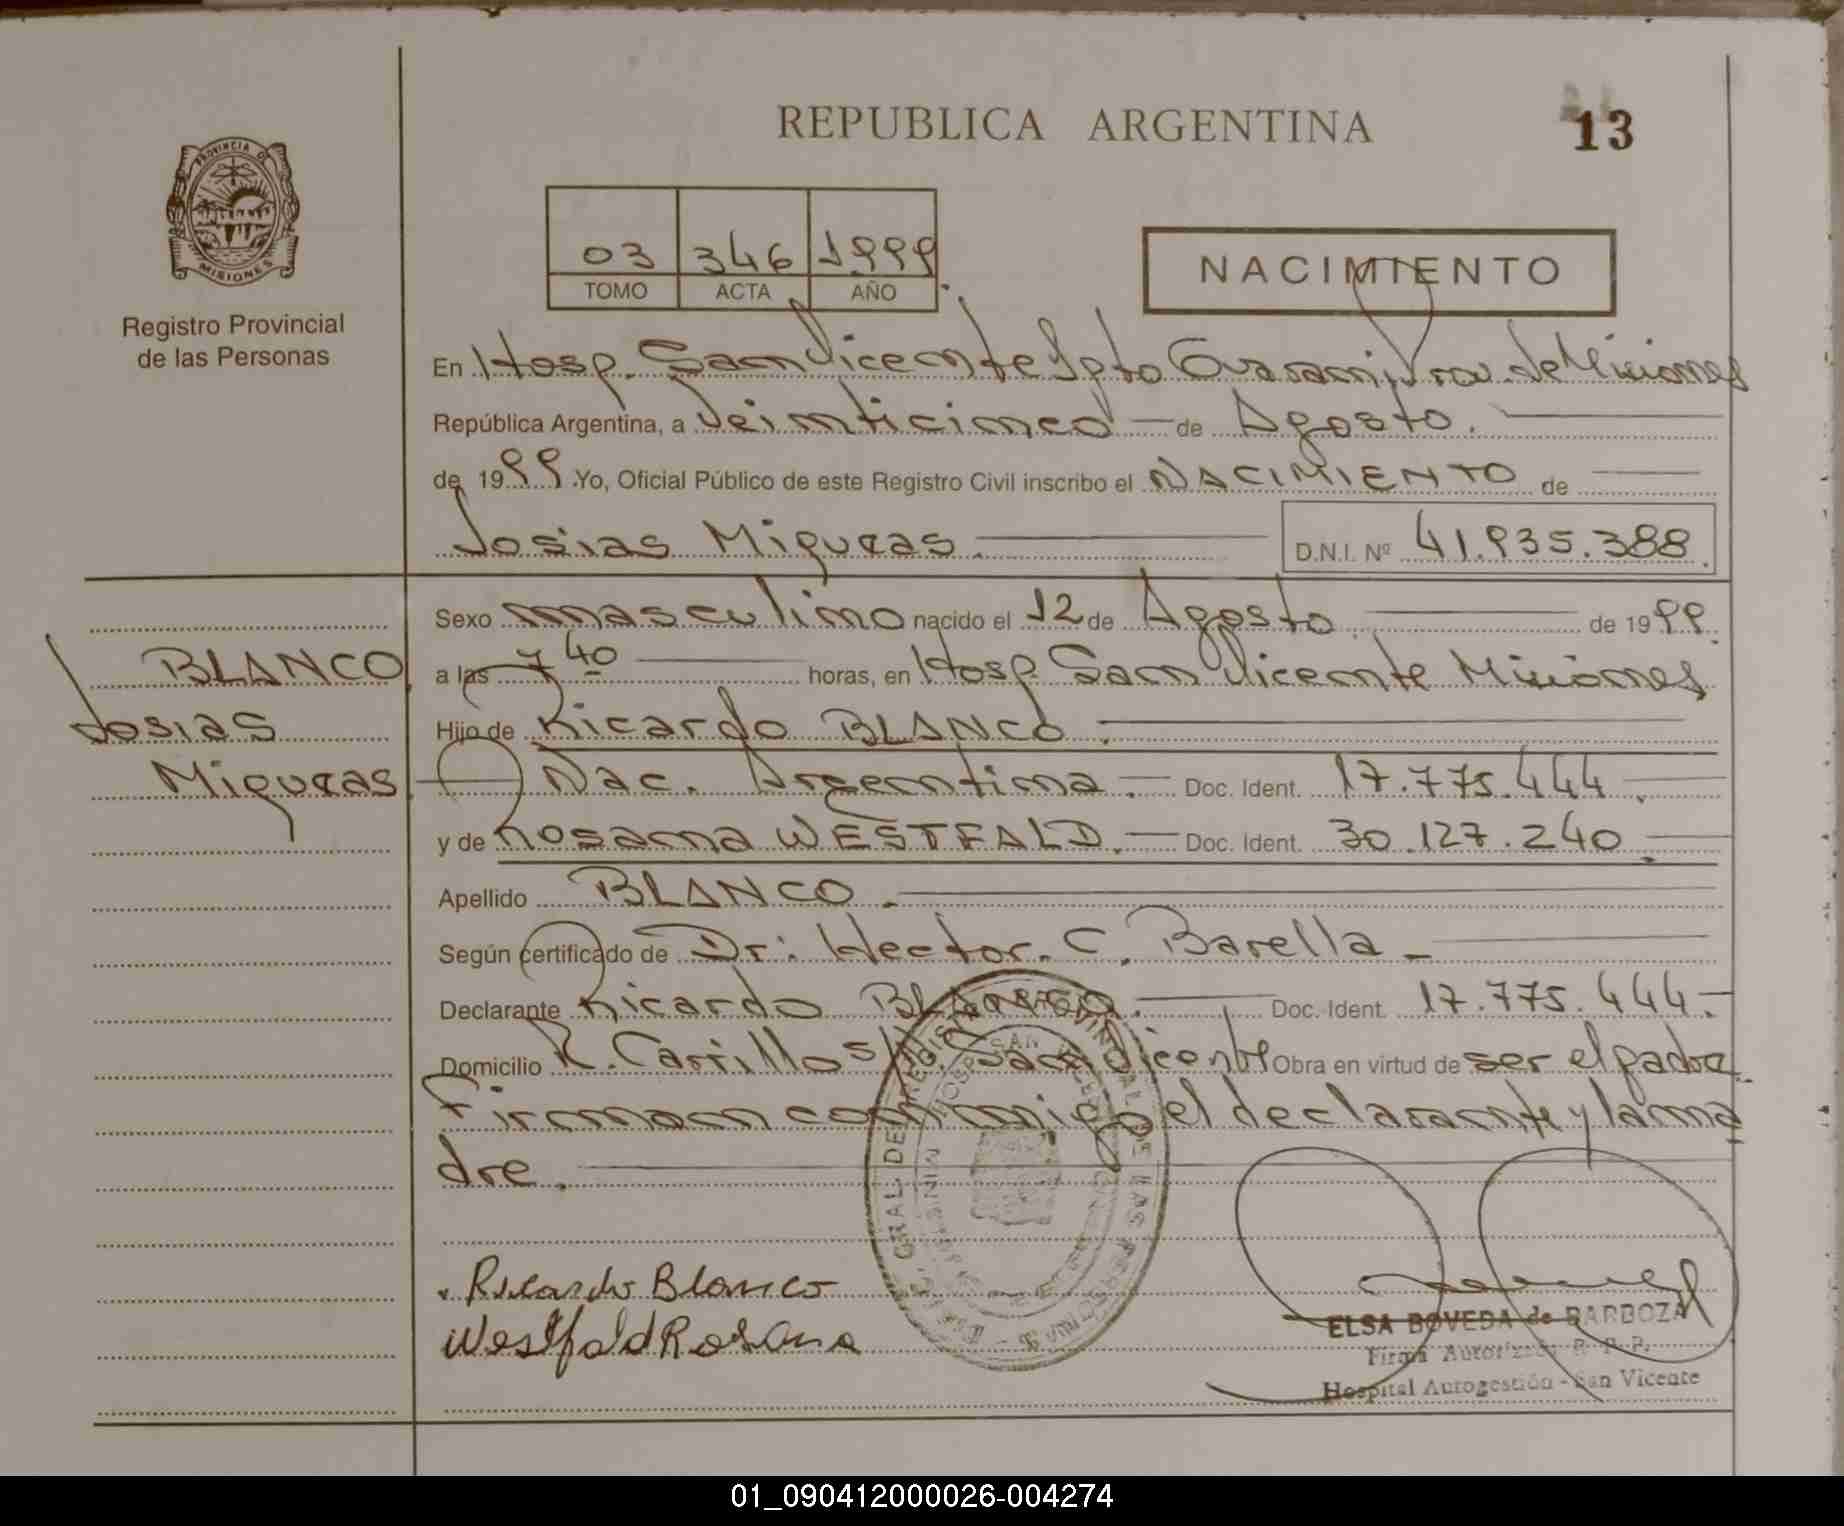 REPUBLICA ARGENTINA
13
PROVINCIA DE
MISIONES
Registro Provincial
de las Personas
03 346 1999
TOMO ACTA AÑO
NACIMIENTO
En Hosp. San Vicente Dpto Guarani, Prov. de Misiones
República Argentina, a Veinticinco de Agosto.
de 1999 Yo, Oficial Público de este Registro Civil inscribo el NACIMIENTO de
Josias Miqueas. D.N.I. Nº 41.935.388.
Sexo masculino nacido el 12 de Agosto de 1999.
BLANCO,
a las 7 40 horas, en Hosp San Vicente Misiones
Josias
Hijo de Ricardo BLANCO.
Miqueas
Nac. Argentina. Doc. Ident. 17.775.444.
y de Rosana WESTFALD. Doc. Ident. 30.127.240.
Apellido BLANCO.
Según certificado de Dr: Hector. C. Barella
Declarante Ricardo BLANCO. Doc. Ident. 17.775.444
Domicilio R. Carrillo s/n. San Vicente Obra en virtud de ser el padre.
Firman conmigo el declarante y la ma
dre.
Ricardo Blanco
Westfald Rosana
ELSA BOVEDA de BARBOZA
Firma Autorizada R. P. P.
Hospital Autogestión - San Vicente
01_090412000026-004274